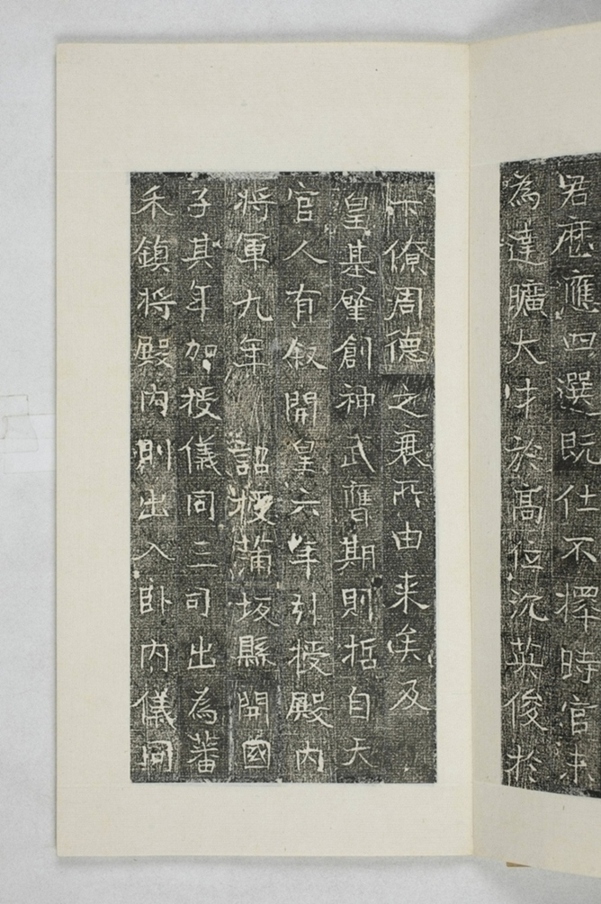 君歴應四選既仕不擇時官未
為達曠大才於高位沉英俊於
下僚周德之衰所由来矣及
皇基肇創神武膺期則哲自天
官人有叙開皇六年引授殿内
将軍九年 詔授蒲坂縣開國
子其年加授儀同三司出為蕃
禾鎮将殿内則出入卧内儀同